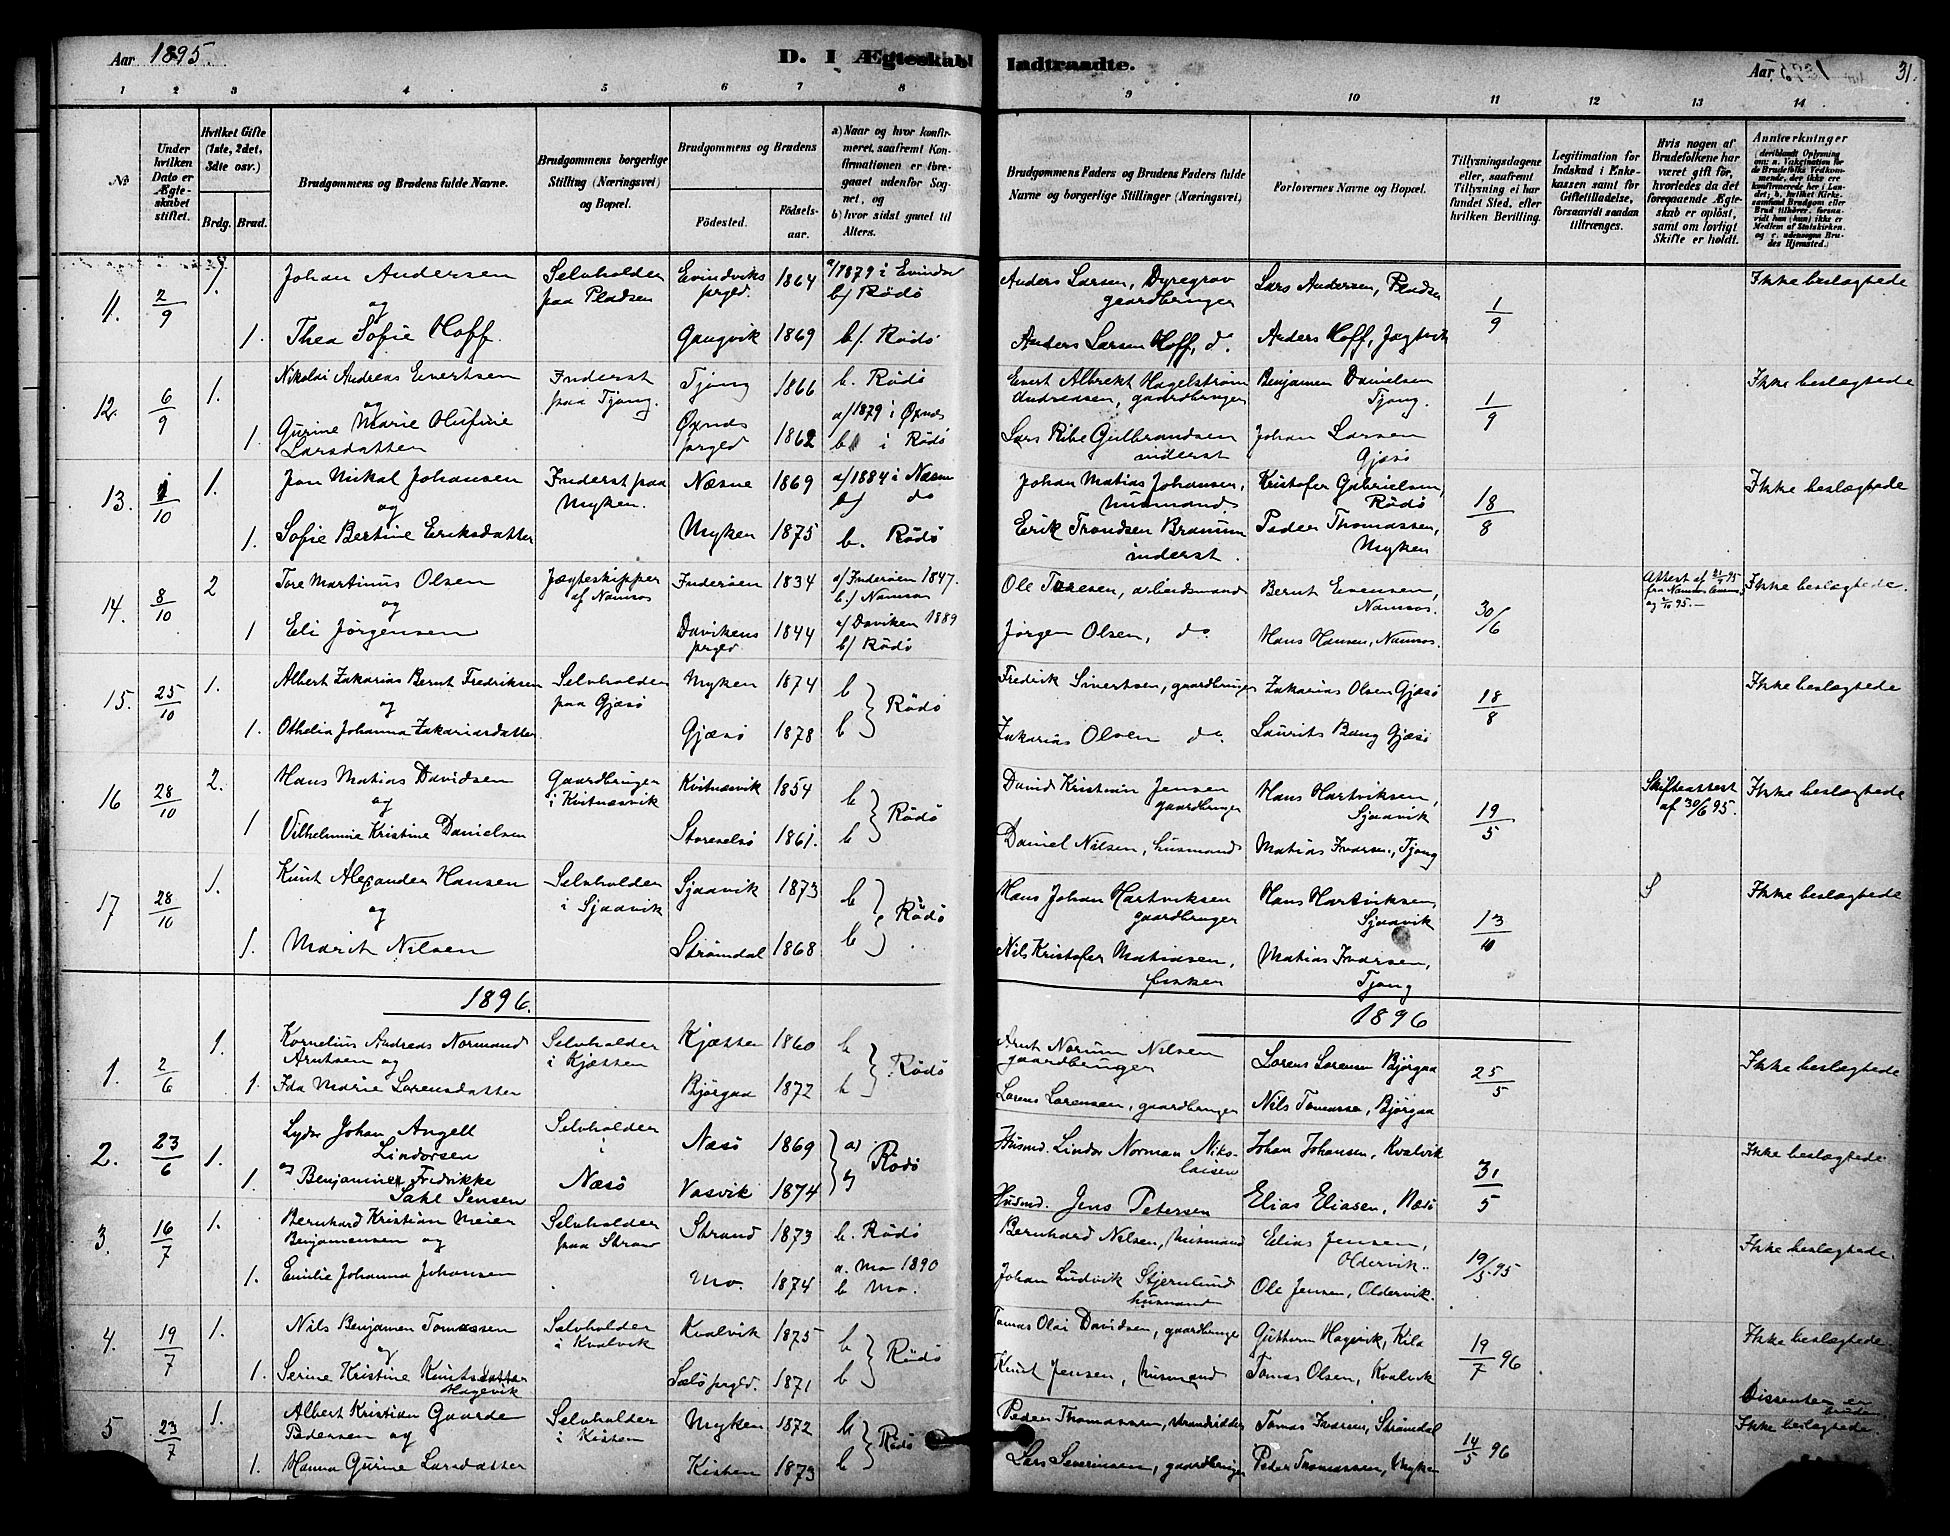 Aar 1895.
D. I Ægteskab Indtraadte.
Aar 1895
31.
1 2 3 4 5 6 7 8 9 10 11 12 13 14
№
Under hvilken Dato er Ægteskabet stiftet.
Hvilket Gifte (1ste, 2det, 3dte osv.)
Brdg. Brud.
Brudgommens og Brudens fulde Navne.
Brudgommens borgerlige Stilling (Næringsvei) og Bopæl.
Brudgommens og Brudens
Födested.
Födselsaar.
a) Naar og hvor konfirmeret, saafremt Konfirmationen er foregaaet udenfor Sognet, og
b) hvor sidst gaaet til Alters.
Brudgommens Faders og Brudens Faders fulde Navne og borgerlige Stillinger (Næringsvei)
Forlovernes Navne og Bopæl.
Tillysningsdagene eller, saafremt Tillysning ei har fundet Sted, efter hvilken Bevilling.
Legitimation for Indskud i Enkekassen samt for Giftetilladelse, forsaavidt saadan tiltrænges.
Hvis nogen af Brudefolkene har været gift før, hvorledes da det foregaaende Ægteskab er opløst, samt om lovligt Skifte er holdt.
Anmærkninger
11. 2/9 1. Johan Andersen Selvholder paa Pladsen Evindviks prgld. 1864 a/1879 i Evindv b/ Rödö Anders Larsen, Dyregrov gaardbruger Lars Andersen, Pladsen 1/9 Ikke beslægtede
og
1. Thea Sofie Hoff. Gangvik 1869 b/. Rödö Anders Larsen Hoff, d. Anders Hoff, Jagtvik
12. 6/9 1. Nikolai Andreas Evertsen Inderst paa Tjong. Tjong 1866 b. Rödö Evert Albrekt Hagelstrøm Andreasen, gaardbruger Benjamin Danielsen Tjong. 1/9 Ikke beslægtede
og
1 Gurine Marie Hufine Larsdatter Øxnes prgld 1862 a/1879 i Øxnes b i Rödö Lars Ribe Gulbrandsen inderst Johan Larsen Gjæsö
13. 1/10 1. Jon Mikal Johansen Inderst paa Myken. Næsne 1869 a/1884 i Næsne b/ do Johan Matias Johansen, husmand. Kristofer Gabrielsen, Rödö 18/8 Ikke beslægtede
og
1. Sofie Bertine Eriksdatter Myken 1875 b. Rödö Erik Trondsen inderst. Peder Thomassen, Myken
14. 8/10 2 Tore Martinus Olsen Jægteskipper af Namsos Inderöen 1834 a/Inderöen 1847. b./ Namsos Ole Toresen, arbeidsmand Bernt Evensen, Namsos. 30/6 Attest af 21/9 95 fra Namsos og 2/10 95.- Ikke beslægtede.
og
1 Eli Jörgensen Davikens prgld. 1844 a/ Daviken 1889 b/ Rödö Jörgen Olsen, do Hans Hansen, Namsos.
15. 25/10 1. Albert Zakarias Bernt Fredriksen Selvholder paa Gjæsö Myken 1874 b Rödö Fredrik Sivertsen, gaardbruger Zakarias Olsen Gjæsö 18/8 Ikke beslægtede
og
1. Othelia Johanna Zakariasdatter Gjæsö 1878 b Zakarias Olsen do. Laurits Bang Gjæsö
16 28/10 2. Hans Matias Davidsen Gaardbruger i Kvitnæsvik Kvitnæsvik 1854 b Rödö David Kristian Jensen gaardbruger Hans Hartviksen, Sjaavik 19/5 Skifteattest af 30/6 95. Ikke beslægtede
og
1 Vilhelmine Kristine Danielsen Storeselsö 1861. b Daniel Nilsen, husmand Matias Ivarsen, Tjong
17 28/10 1. Knut Alexander Hansen Selvholder i Sjaavik Sjaavik 1873 b Rödö Hans Johan Hartviksen gaardbruger Hans Hartviksen, Sjaavik 13/10 Ikke beslægtede
og
1. Marit Nilsen Strömdal 1868 b Nils Kristofer Matiasen, fisker Matias Ivarsen, Tjong
1896. 1896
1. 2/6 1. Kornelius Andreas Normand Arntsen og Selvholder i Kjætten Kjætten 1860 b Rödö Arnt Norum Nilsen gaardbruger Lorens Lorensen Bjørgaa 25/5 Ikke beslægtede
1. Ida Marie Lorensdatter Bjørgaa 1872 b Lorens Lorensen, gaardbruger Nils Tomassen, Bjørgaa
2. 23/6 1. Lyder Johan Angell Lindorsen Selvholder i Næsö Næsö 1869 Rödö Husmd. Lindor Norman Nikolaisen Johan Johansen, Kvalvik 31/5 Ikke beslægtede
1. og Benjamine Fredrikke Dahl Jensen Vasvik 1874 Husmd. Jens Petersen Elias Eliasen, Næsö
3. 16/7 1. Bernhard Kristian Meier Benjaminsen og Selvholder paa Strand Strand 1873 b. Rödö Bernhard Nilsen, husmand Elias Jensen, Oldervik. 19/5 95 Ikke beslægtede.
1. Emilie Johanna Johansen Mo. 1874 a. Mo 1890 b Mo. Johan Ludvik Stjernlund husmand Ole Jensen, Oldervik.
4. 19/7 1. Nils Benjamin Tomassen Selvholder i Kvalvik Kvalvik 1875 b Rödö Tomas Olai Davidsen, gaardbruger Guttorm Hagevik, Kila 19/7 96 Ikke beslægtede.
og
1. Serine Kristine Knutsdatter Hagevik Sælö prgld. 1871 b Knut Jensen, husmand Tomas Olsen, Kvalvik
5 23/7 1. Albert Kristian Gaarde Pedersen og Selvholder i Kisten Myken 1872 b Rödö Peder Thomassen, strandsidder Tomas Ivarsen, Strömdal 14/5 96 Dissenter er bruden Ikke beslægtede.
1. Hanna Gurine Larsdatter Kisten 1873 b Lars Severinsen, gaardbruger Peder Thomassen, Myken